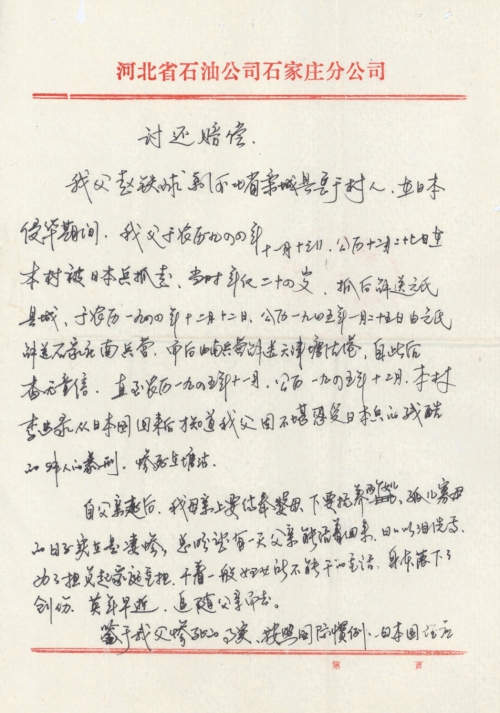 河北省石油公司石家庄分公司
讨还赔偿.
我父赵铁球系河北省栾城县 于村人，在日本
侵华期间，我父于农历一九四四年十一月十三日，公历十二月二十七日在
本村被日本兵抓走，当时年纪二十四岁，抓后解送元氏
县城，于农历一九四四年十二月十二日，公历一九四五年一月二十五日由元氏
解送石家庄南兵营，而后由南兵营解送天津塘沽港，自此后
杳无音信，直至农历一九四五年十一月，公历一九四五年十二月，本村
李 录从日本国回来后才知道我父因不堪忍受日本兵的残酷
的 人的暴刑，惨死在塘沽
自父亲走后，我母亲上要侍奉 母，下要抚养 ，孤儿寡母
的日子实在是凄惨，总盼望有一天父亲能活着回来，日日以泪洗面，
为了担负起家庭重担，干着一般妇女所不能干的重活，身体落下了
创伤，英年早逝，追随父亲而去。
鉴于我父惨死的事实，按照国际惯例，日本国 应
第 页